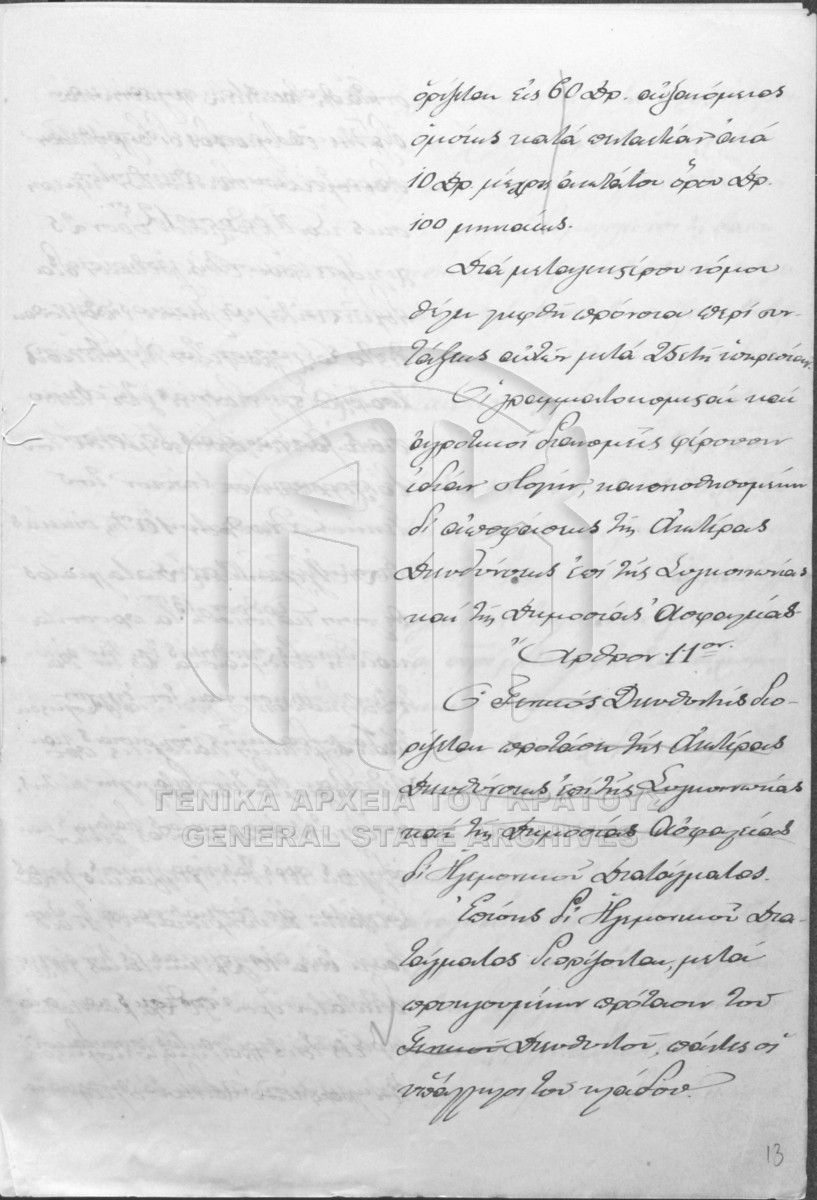 ὁρίζεται εἰς 60 Δρ. αὐξανόμενος
ὁμοίως κατά πενταετίαν ἀνά
10 Δρ. μέχρις ἀνωτάτου ὅρου Δρ.
100 μηνιαίως.
Διά μεταγενεστέρου νόμου
θέλει ληφθῆ πρόνοια περί συν-
τάξεως αὐτῶν μετά 25ετῆ ὑπηρεσίαν.
Οἱ γραμματοκομισταί καί
ἀγροτικοί διανομεῖς φέρουσιν
ἰδίαν στολήν, κανονισθησομένην
δι' ἀποφάσεως τῆς Ἀνωτέρας
Διευθύνσεως ἐπί τῆς Συγκοινωνίας
καί τῆς Δημοσίας Ἀσφαλείας
Ἄρθρον 11ον.
Ὁ Γενικός Διευθυντής διο-
ρίζεται προτάσει τῆς Ἀνωτέρας
Διευθύνσεως ἐπί τῆς Συγκοινωνίας
καί τῆς Δημοσίας Ἀσφαλείας
δι' Ἡγεμονικοῦ Διατάγματος.
Ἐπίσης δι' Ἡγεμονικοῦ Δια-
τάγματος διορίζονται, μετά
προηγουμένην πρότασιν τοῦ
Γενικοῦ Διευθυντοῦ, πάντες οἱ
ὑπάλληλοι τοῦ κλάδου.
13
ΓΕΝΙΚΑ ΑΡΧΕΙΑ ΤΟΥ ΚΡΑΤΟΥΣ
GENERAL STATE ARCHIVES